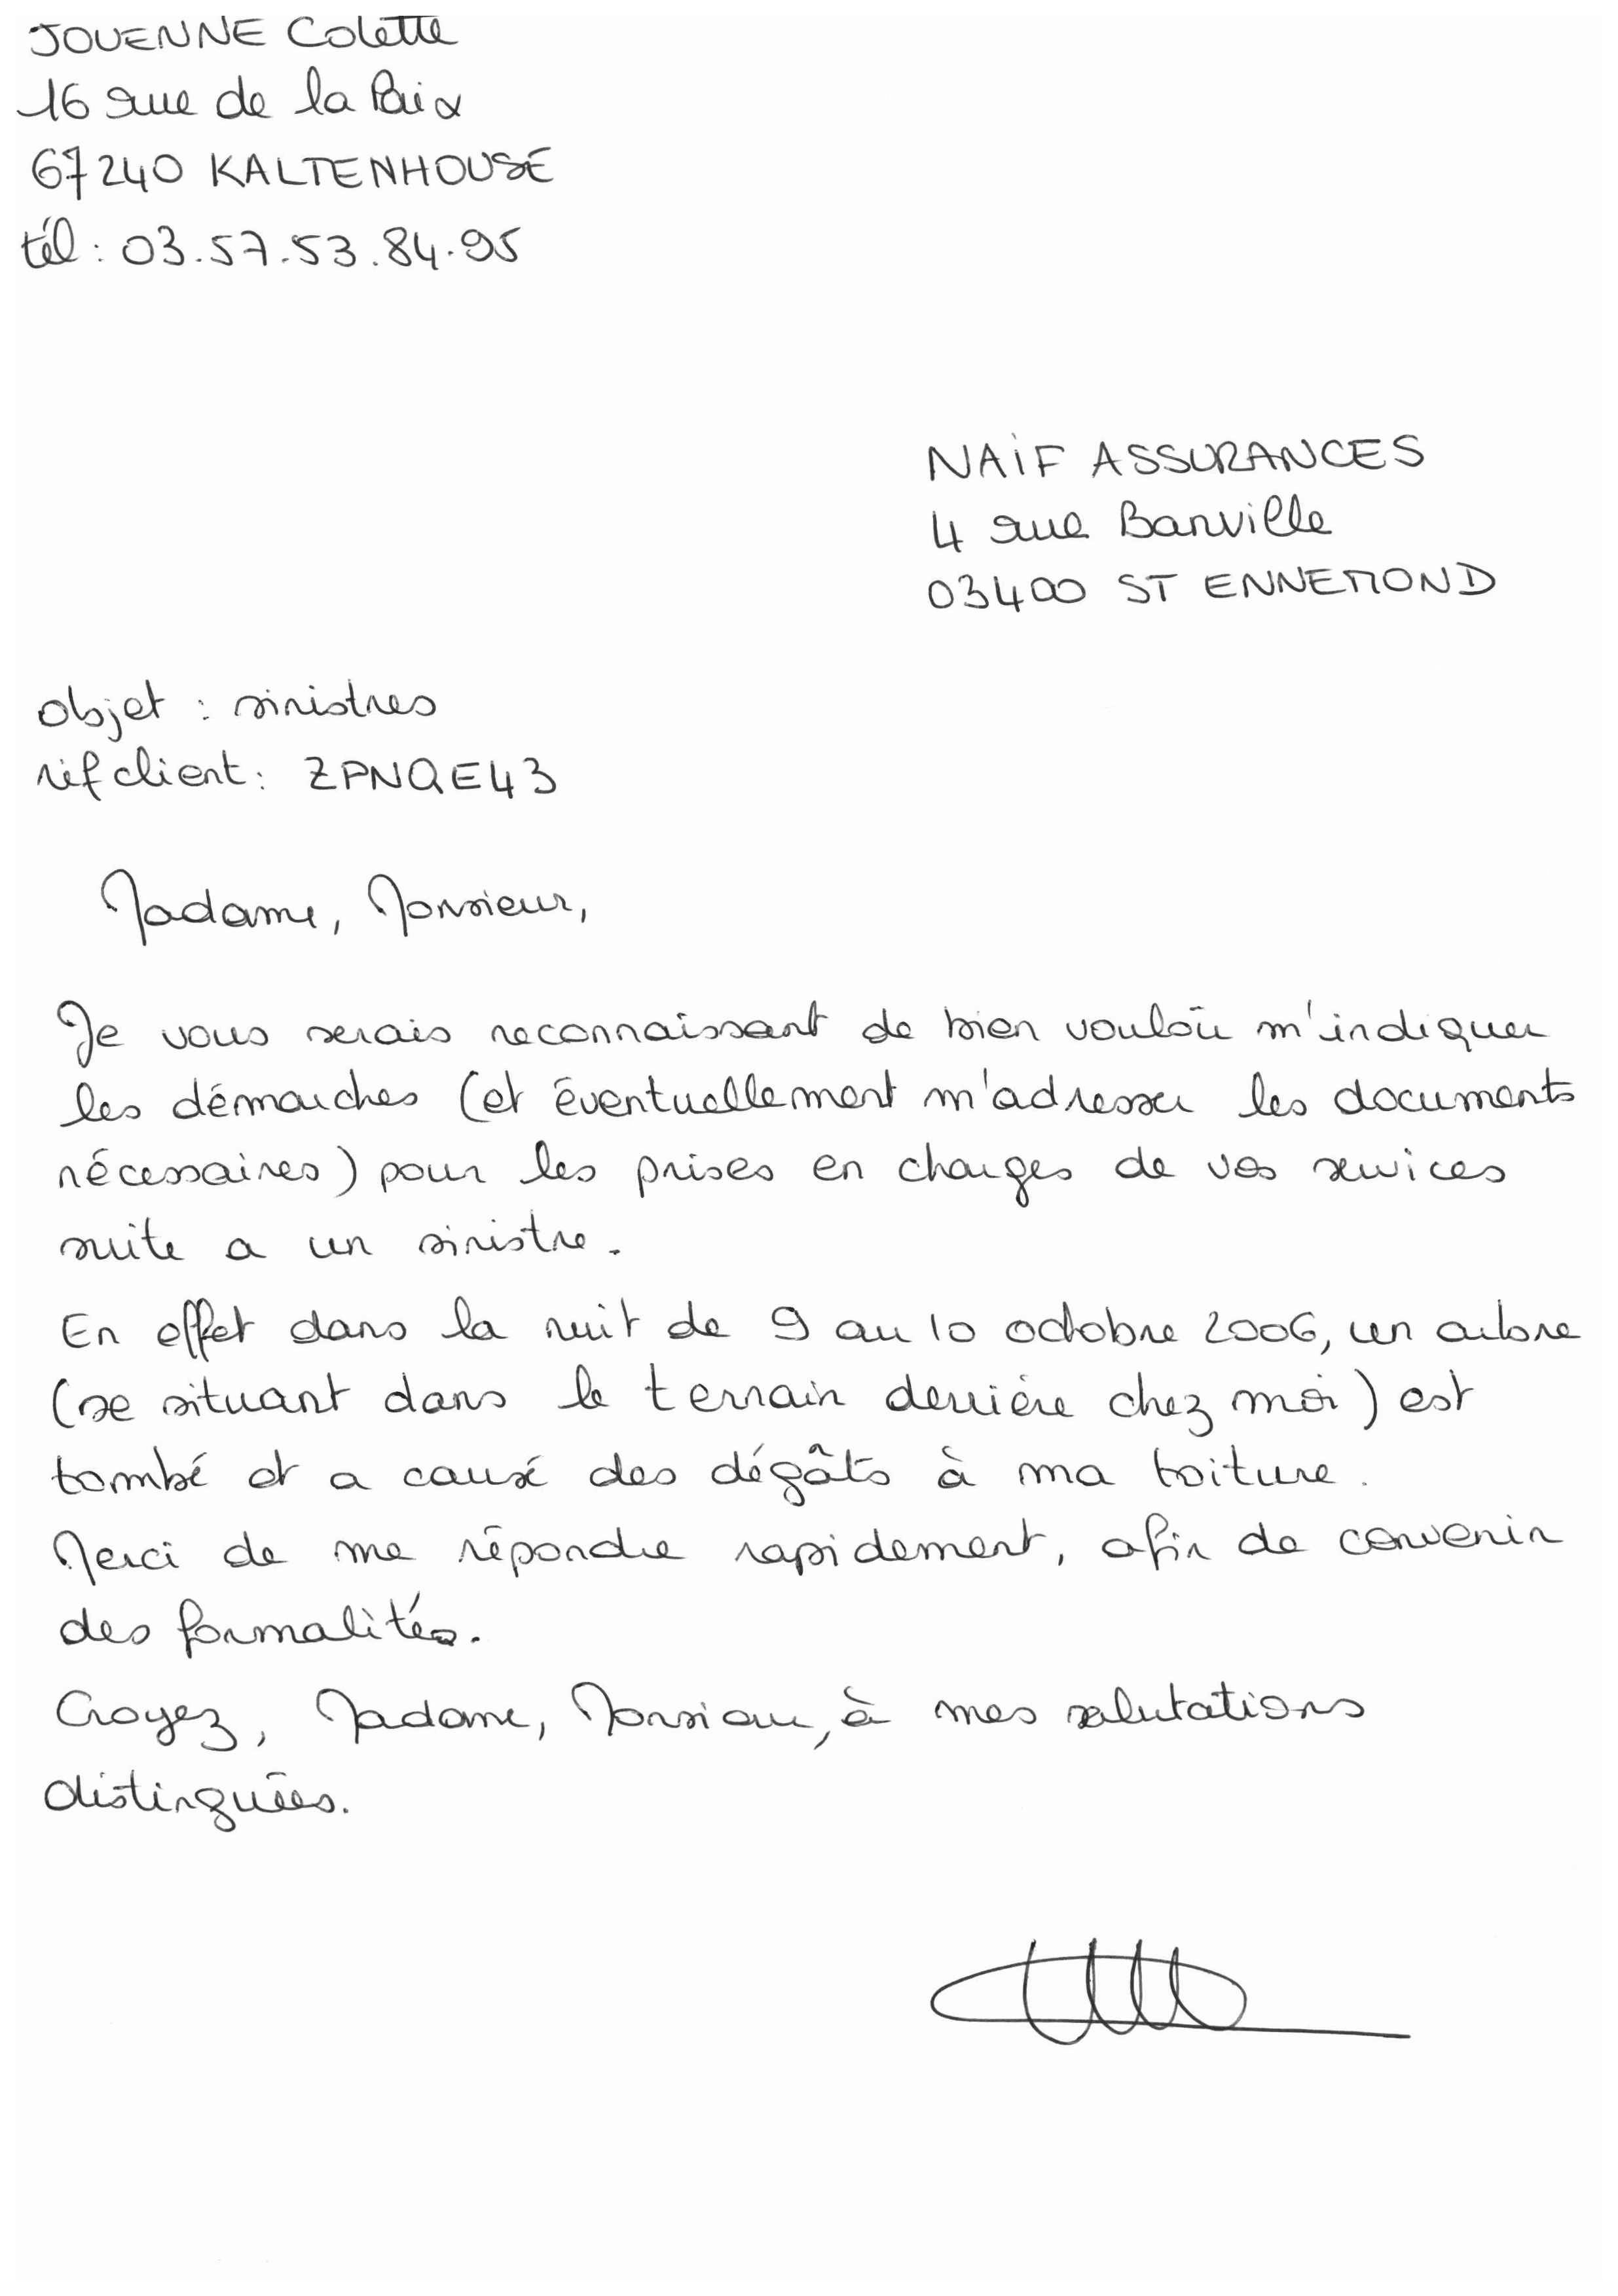 JOUENNE Colette
16 rue de la Paix
67240 KALTENHOUSE
tél : 03.57.53.84.95
NAIF ASSURANCES
4 rue Banville
03400 ST ENNEMOND
objet : sinistres
réf client : ZPNQE43
Madame, Monsieur,
Je vous serais reconnaissant de bien vouloir m'indiquer
les démarches (et éventuellement m'adresser les documents
nécessaires) pour les prises en charges de vos services
suite a un sinistre.
En effet dans la nuit de 9 au 10 octobre 2006, un arbre
(se situant dans le terrain derrière chez moi) est
tombé et a causé des dégâts à ma toiture.
Merci de me répondre rapidement, afin de convenir
des formalités.
Croyez, Madame, Monsieur, à mes salutations
distinguées.